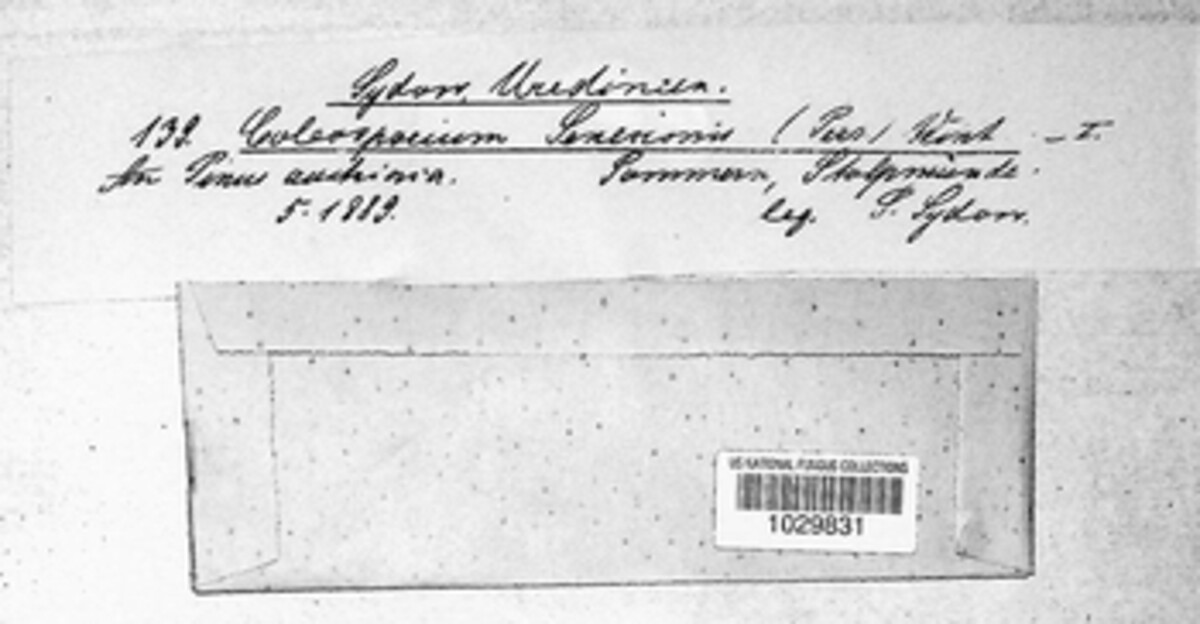 Sydow, Uredineen.
139. Coleosporium Senecionis (Pers) Wint - I.
An Pinus austriaca. Pommern, Stolpmünde.
5. 1889. leg. P. Sydow.
US NATIONAL FUNGUS COLLECTIONS
1029831